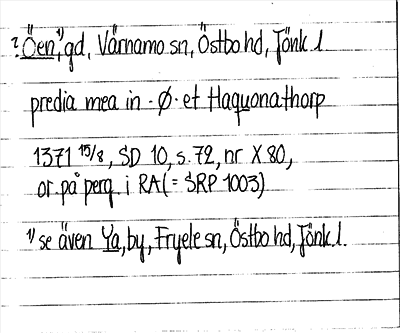 ? Öen,¹⁾ gd, Värnamo sn, Östbo hd, Jönk l
predia mea in · Ø · et Haquonathorp
1371 15/8, SD 10, s. 72, nr X 80,
or. på perg. i RA (= SRP 1003)
¹⁾ se även Ya, by, Fryele sn, Östbo hd, Jönk l.